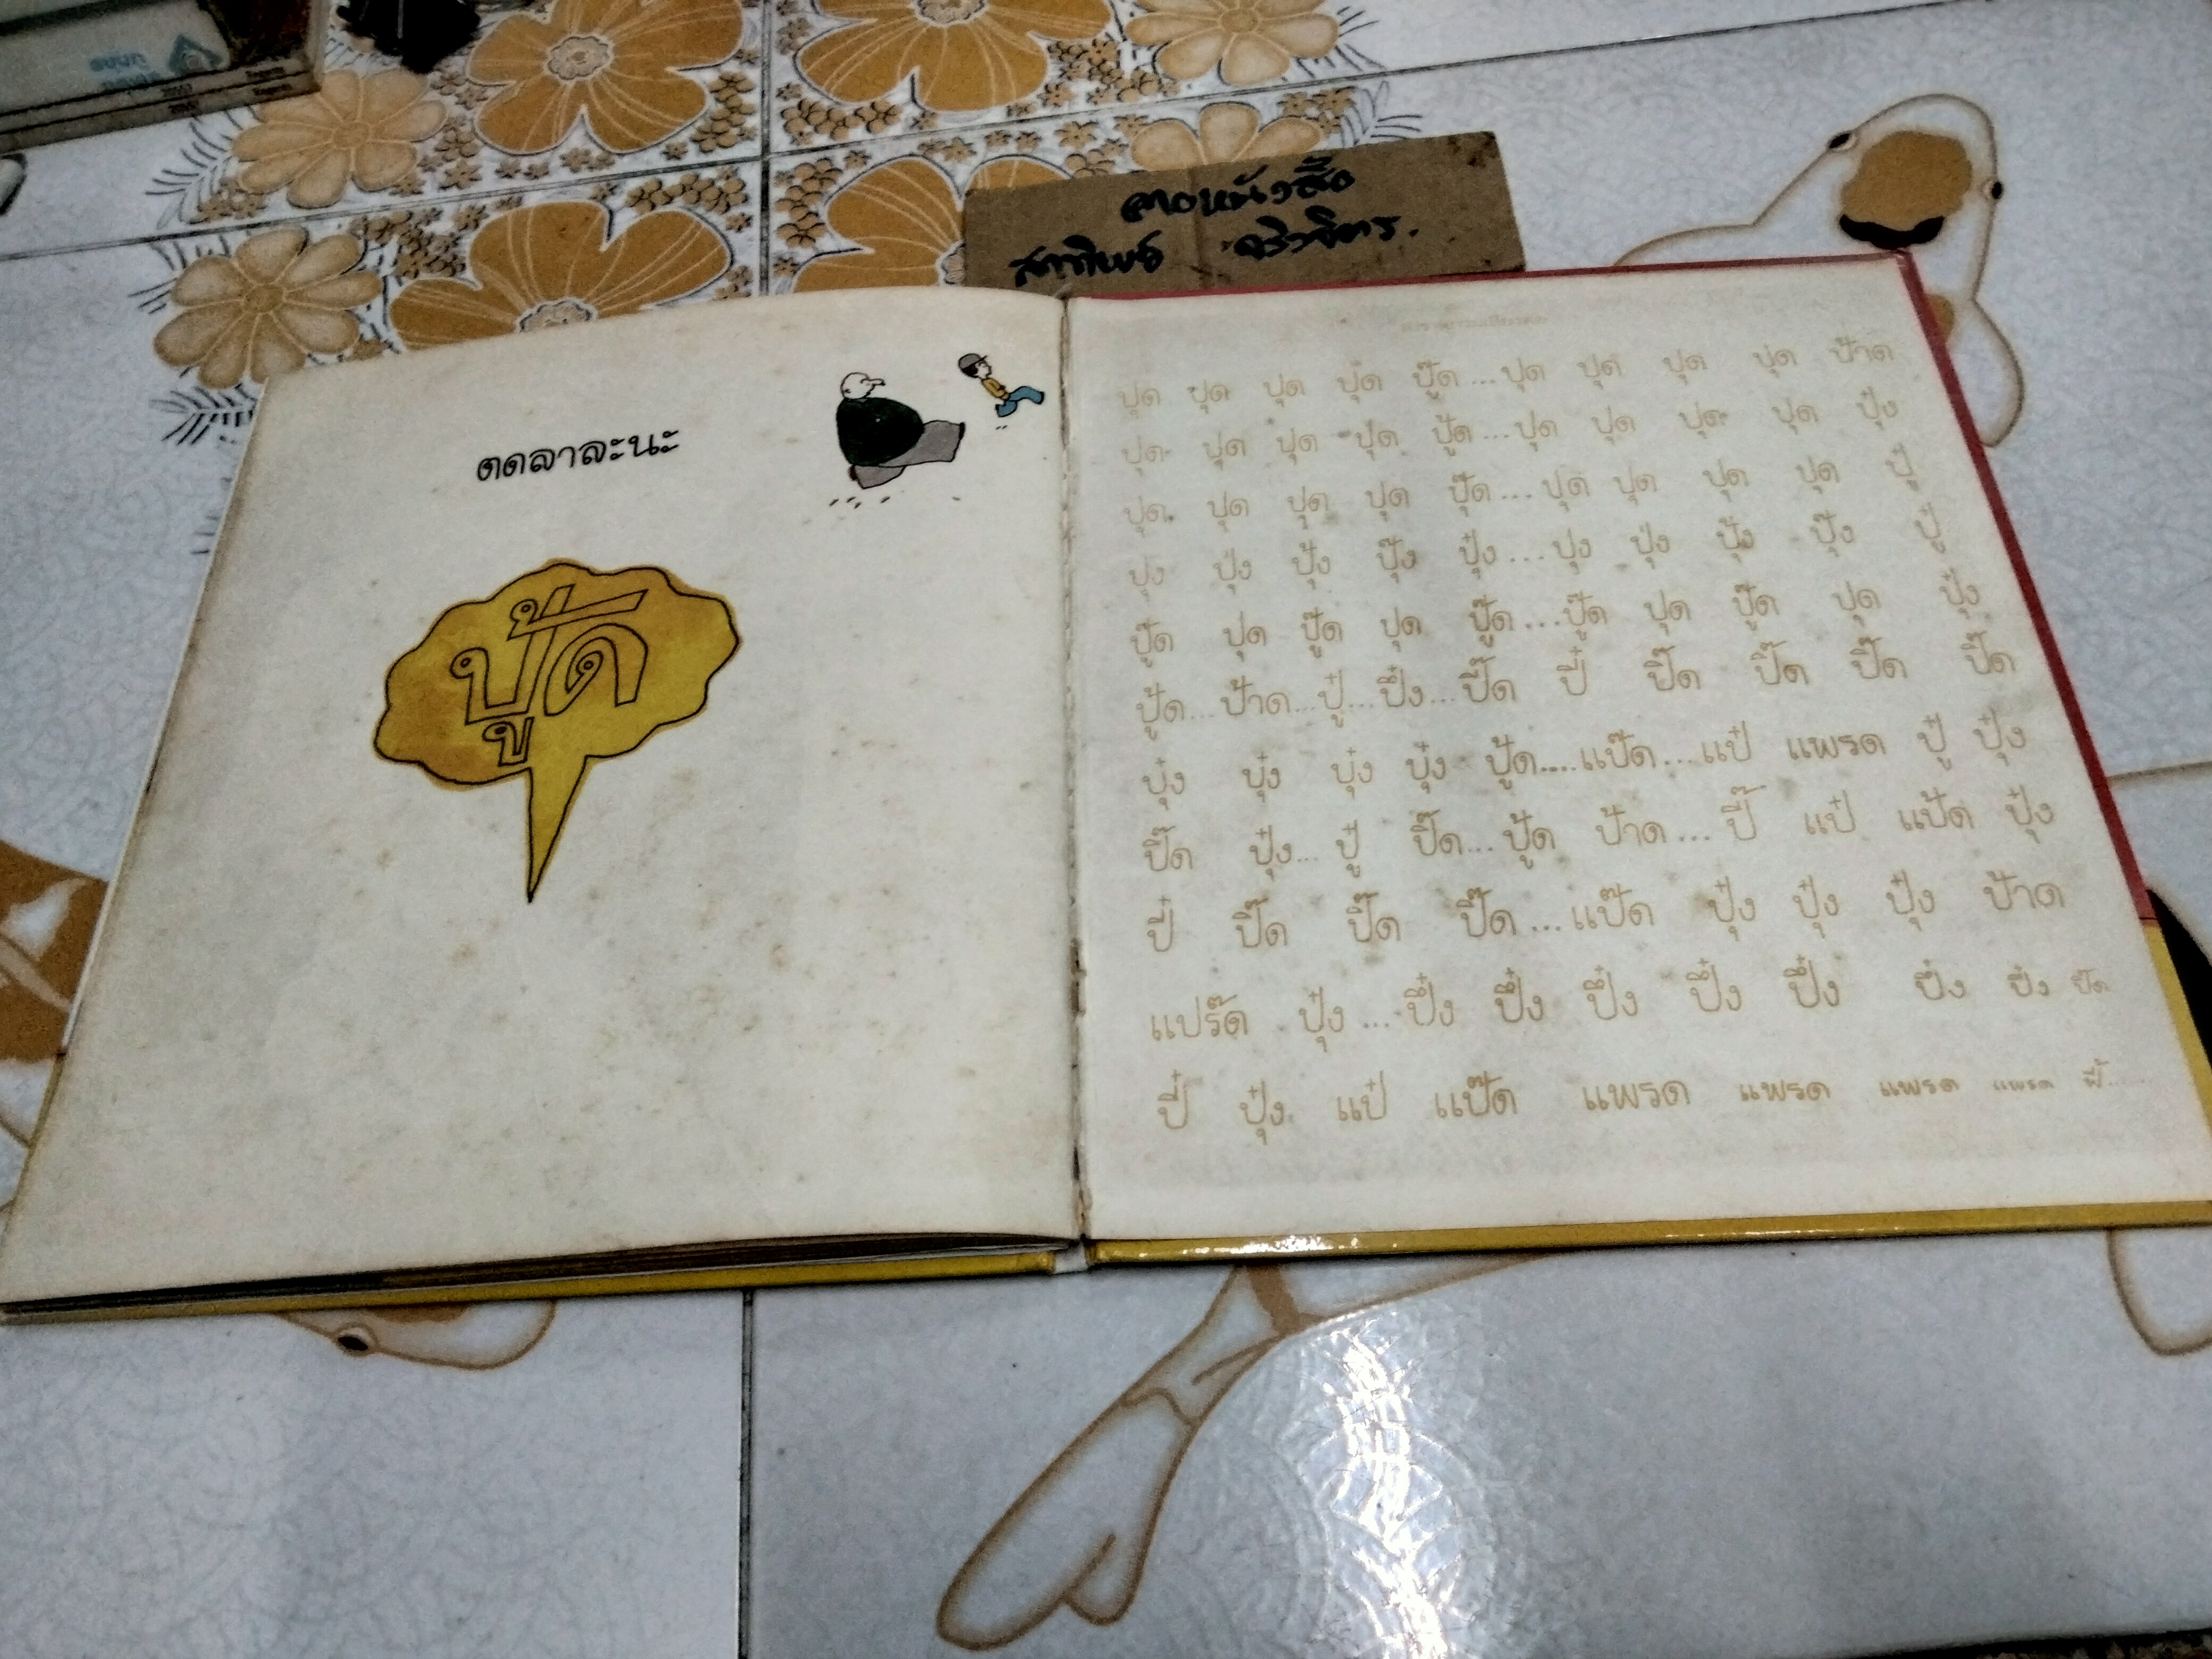 ตดลาละนะ
ปู้ด
ปุด ปุด ปุด ปุ๋ด ปู๊ด...ปุด ปุด ปุด ปุด ป้าด
ปุด ปุด ปุด ปุด ปู้ด...ปุด ปุด ปุด ปุด ปุ๋ง
ปุด ปุด ปุด ปุด ปุ๊ด...ปุด ปุด ปุด ปุด ปู๋
ปุง ปุ่ง ปุ้ง ปุ๊ง ปุ๋ง...ปุง ปุ่ง ปุ้ง ปุ๊ง ปู๋
ปู๊ด ปุด ปู๊ด ปุด ปู๊ด...ปู๊ด ปุด ปู๊ด ปุด ปุ๋ง
ปู้ด...ป้าด...ปู๋...ปึ๋ง...ปี๊ด ปี๋ ปี๊ด ปี๊ด ปี๊ด ปี๊ด
ปุ๋ง ปุ๋ง ปุ๋ง ปุ๋ง ปู้ด....แป๊ด...แป๋ แพรด ปู๋ ปุ๋ง
ปี๊ด ปุ๋ง...ปู๋ ปี๊ด...ปู้ด ป้าด...ปี๊ แป๋ แป้ด ปุ๋ง
ปี๋ ปี๊ด ปี๊ด ปี๊ด...แป๊ด ปุ๋ง ปุ๋ง ปุ๋ง ป้าด
แปร๊ด ปุ๋ง...ปึ๋ง ปึ๋ง ปึ๋ง ปึ๋ง ปึ๋ง ปึ๋ง ปึ๋ง ปี๊ด
ปี๋ ปุ๋ง แป๋ แป๊ด แพรด แพรด แพรด แพรด